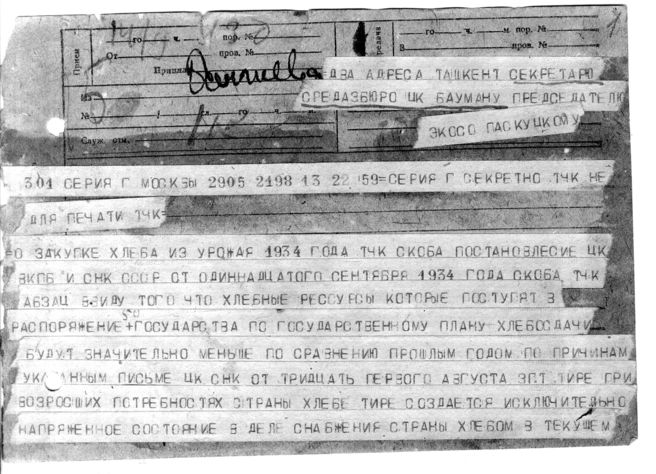 го ч. пор. №
го ч. м пор. №
От пров. №
В пров. №
Прием
Передача
Принял
Из
№ / го ч.
Служ. отм.
ДВА АДРЕСА ТАШКЕНТ СЕКРЕТАРЮ
СРЕДАЗБЮРО ЦК БАУМАНУ ПРЕДСЕДАТЕЛЮ
ЭКОСО ПАСКУЦКОМУ
304 СЕРИЯ Г МОСКВЫ 2905 2198 13 22 59=СЕРИЯ Г СЕКРЕТНО ТЧК НЕ
ДЛЯ ПЕЧАТИ ТЧК=
=О ЗАКУПКЕ ХЛЕБА ИЗ УРОЖАЯ 1934 ГОДА ТЧК СКОБА ПОСТАНОВЛЕСИЕ ЦК
ВКПБ И СНК СССР ОТ ОДИННАДЦАТОГО СЕНТЯБРЯ 1934 ГОДА СКОБА ТЧК
АБЗАЦ ВВИДУ ТОГО ЧТО ХЛЕБНЫЕ РЕССУРСЫ КОТОРЫЕ ПОСТУПЯТ В
РАСПОРЯЖЕНИЕ +ГОСУДАРСТВА ПО ГОСУДАРСТВЕННОМУ ПЛАНУ ХЛЕБОСДАЧИ
БУДУТ ЗНАЧИТЕЛЬНО МЕНЬШЕ ПО СРАВНЕНИЮ ПРОШЛЫМ ГОДОМ ПО ПРИЧИНАМ
УКАЗАННЫМ ПИСЬМЕ ЦК СНК ОТ ТРИДЦАТЬ ПЕРВОГО АВГУСТА ЗПТ ТИРЕ ПРИ
ВОЗРОСШИХ ПОТРЕБНОСТЯХ СТРАНЫ ХЛЕБЕ ТИРЕ СОЗДАЕТСЯ ИСКЛЮЧИТЕЛЬНО
НАПРЯЖЕННОЕ СОСТОЯНИЕ В ДЕЛЕ СНАБЖЕНИЯ СТРАНЫ ХЛЕБОМ В ТЕКУЩЕМ